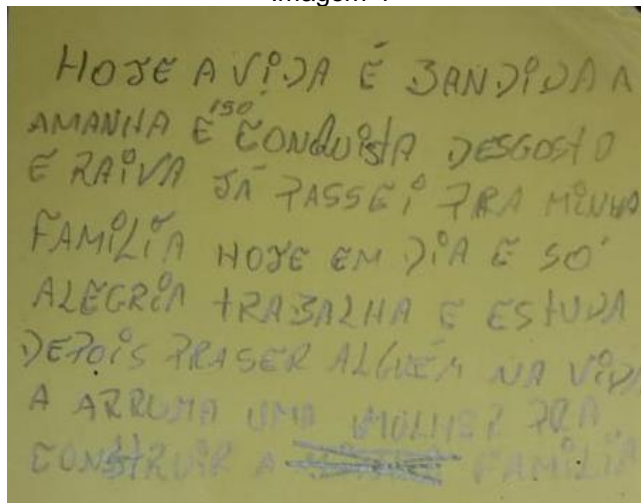 HOJE A VIDA É BANDIDA A
AMANHA É ISO CONQUISTA DESGOSTO
E RAIVA JÁ PASSEI PRA MINHA
FAMÍLIA HOJE EM DIA E SO
ALEGRIA TRABALHA E ESTUDA
DEPOIS PRA SER ALGUÉM NA VIDA
A ARRUMA UMA MULHER PRA
CONSTRUIR A FAMÍLIA